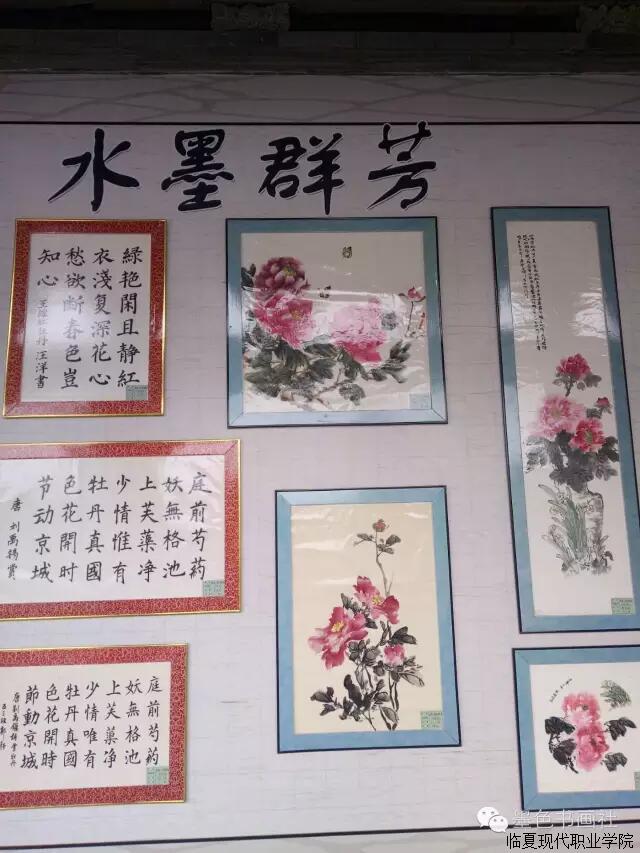 水墨群芳
緑艳閑且静紅
衣淺复深花心
愁欲断春色豈
知心 王維红牡丹 汪洋書
庭前芍药
妖無格池
上芙蕖净
少情惟有
牡丹真國
色花開時
节动京城
唐 刘禹锡赏
庭前芍藥
妖無格池
上芙蕖净
少情唯有
牡丹真國
色花開時
節動京城
墨色书画社
临夏现代职业学院